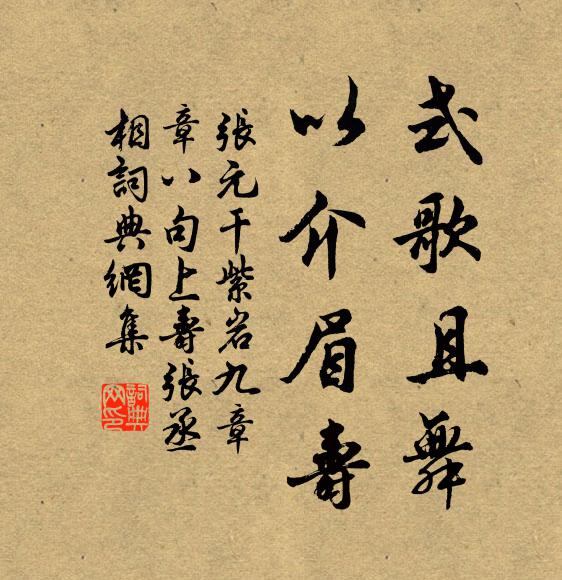 式歌且舞
以介眉壽
張元干紫岩九章
章八句上壽張丞
相詞典網集
詞典网印